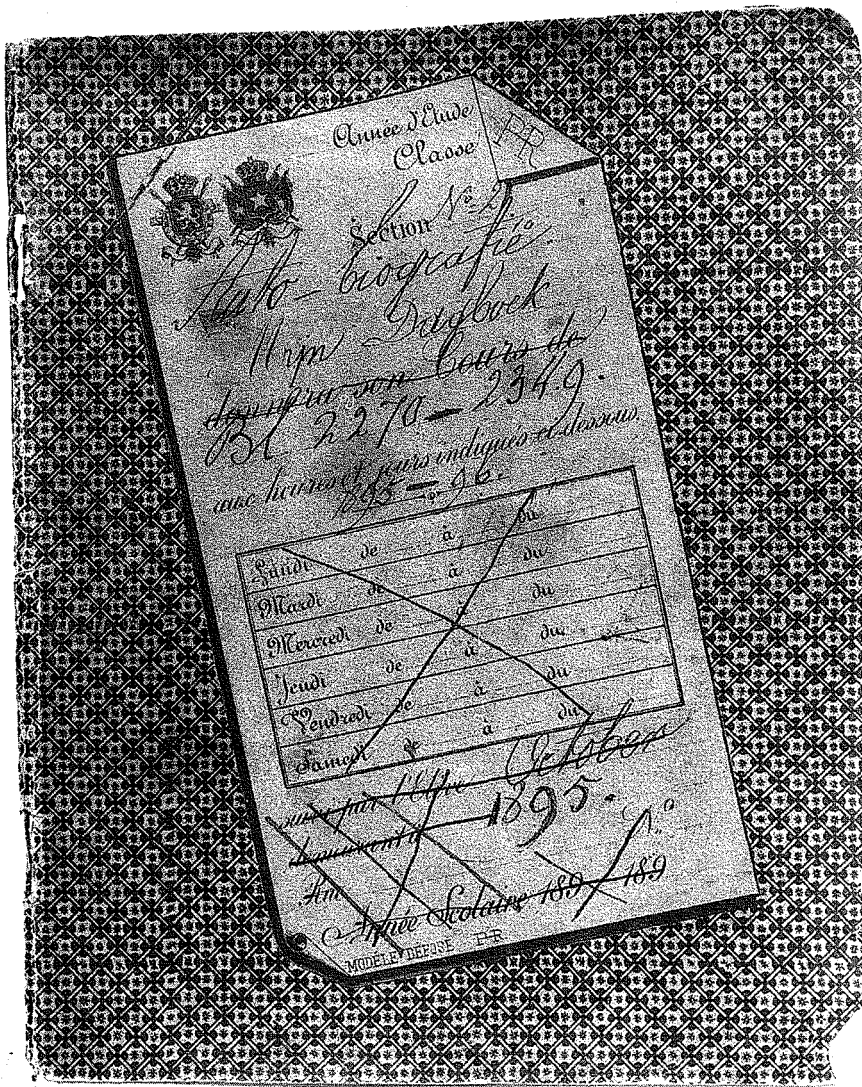 Année d'Etude
PR
Classe
Section No 2
Auto-biografie.
Mijn Dagboek
donne par son Cours de
Bl 2270 — 2349.
aux heures et jours indiqués ci-dessous.
1895 — 96.
Lundi de à du
Mardi de à du
Mercredi de à du
Jeudi de à du
Vendredi de à du
Samedi de à du
suivi par l'Elève October
demeurant à 1895.
Année Scolaire 189 - 189
MODÈLE DÉPOSÉ PR